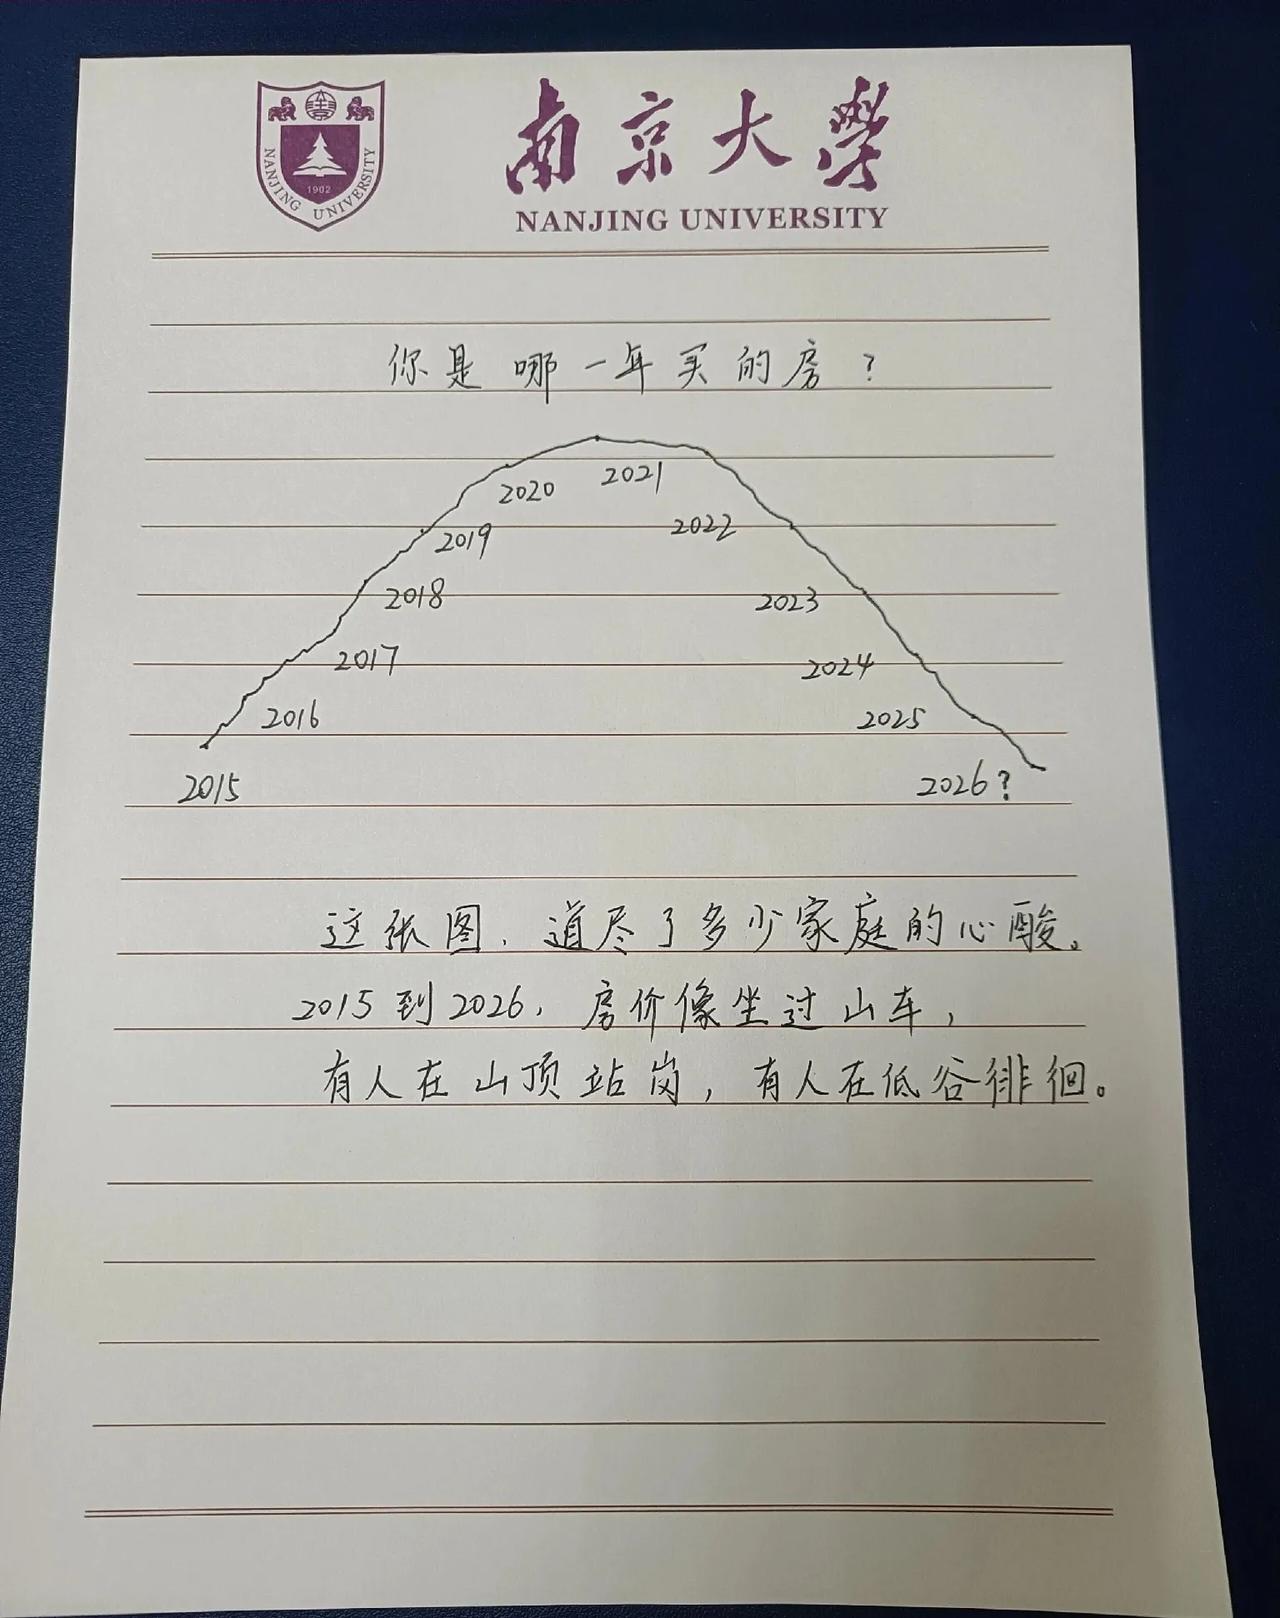 南京大學
NANJING UNIVERSITY
1902
NANJING UNIVERSITY
你是哪一年买的房？
2015
2016
2017
2018
2019
2020
2021
2022
2023
2024
2025
2026?
这张图，道尽了多少家庭的心酸。
2015到2026，房价像坐过山车，
有人在山顶站岗，有人在低谷徘徊。